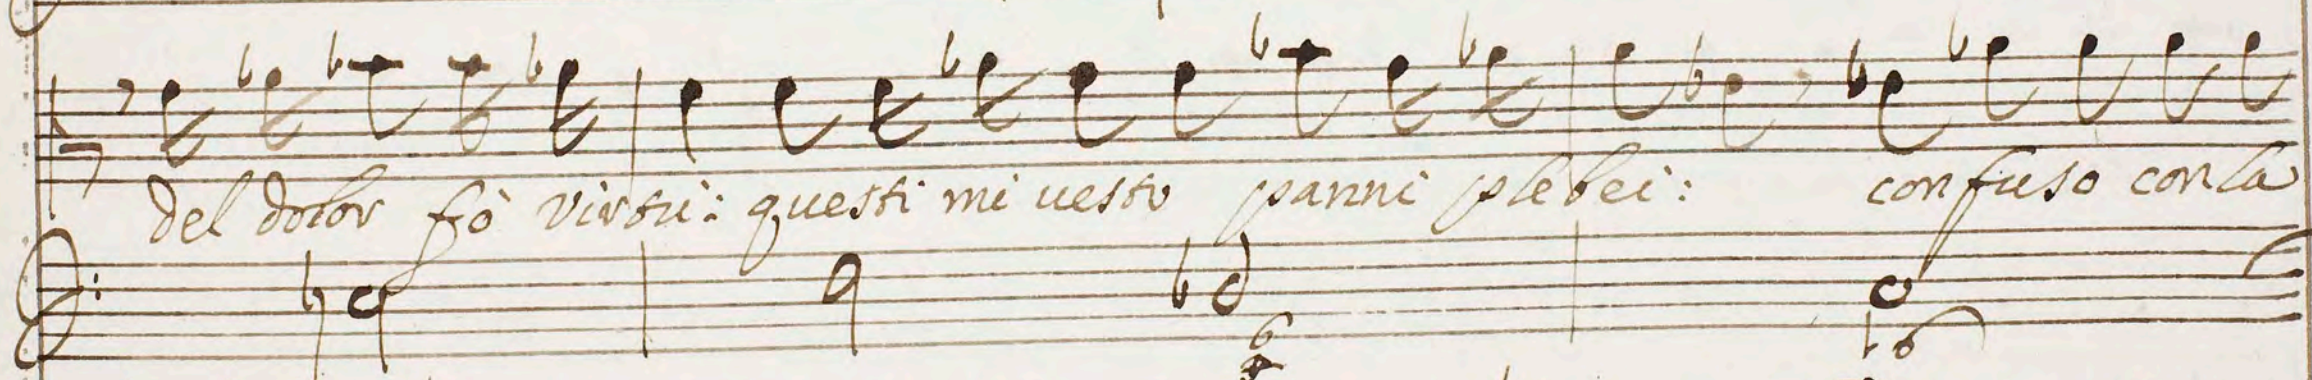 del dolor fò virtù: questi mi uesto panni plebei: confuso con la
6
6